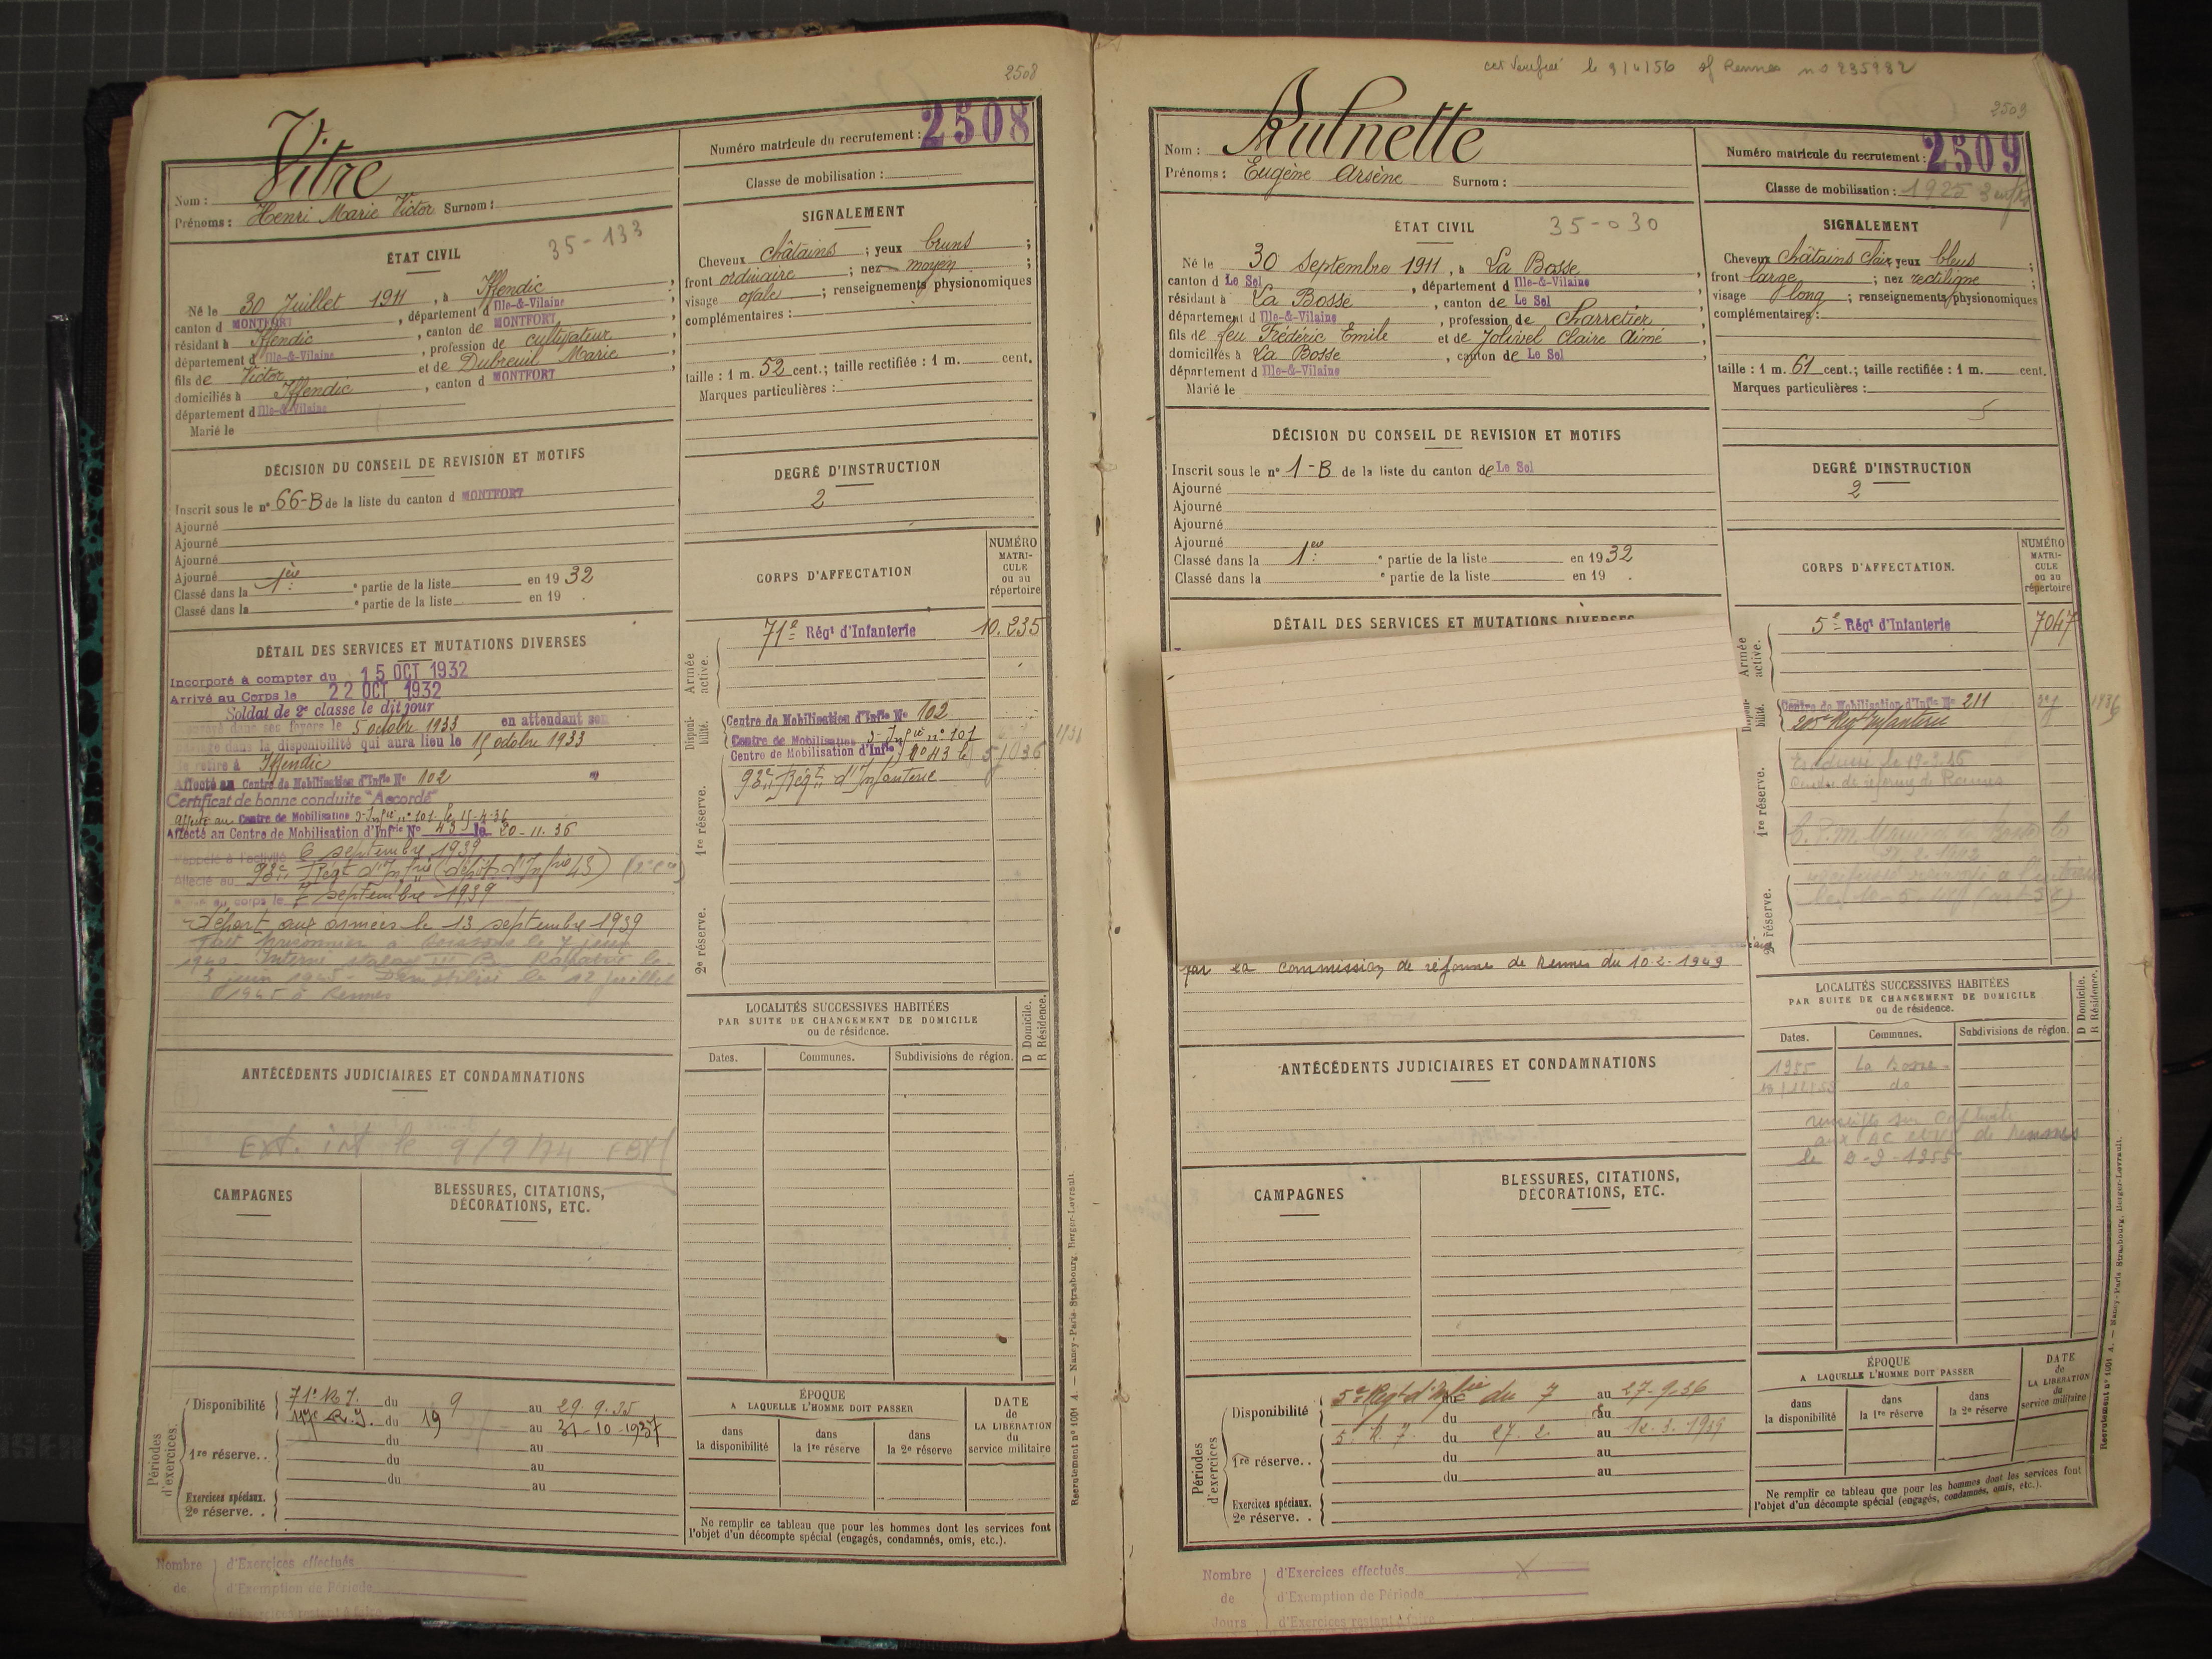 2508
Vitre
Nom :
Prénoms : Henri Marie Victor Surnom :
Numéro matricule du recrutement : 2508
Classe de mobilisation :
ÉTAT CIVIL
35-133
Né le 30 Juillet 1911, à Iffendic
canton d MONTFORT, département d Ille-&-Vilaine
résidant à Iffendic, canton de MONTFORT,
département d Ille-&-Vilaine, profession de cultivateur
fils de Victor et de Dubreuil Marie
domiciliés à Iffendic, canton d MONTFORT
département d Ille-&-Vilaine
Marié le
SIGNALEMENT
Cheveux châtains ; yeux bruns ;
front ordinaire ; nez moyen ;
visage ovale ; renseignements physionomiques
complémentaires :
taille : 1 m. 52 cent.; taille rectifiée : 1 m. cent.
Marques particulières :
DÉCISION DU CONSEIL DE REVISION ET MOTIFS
Inscrit sous le n° 66-B de la liste du canton d MONTFORT
Ajourné
Ajourné
Ajourné
Ajourné
Classé dans la 1ère e partie de la liste en 1932
Classé dans la e partie de la liste en 19 .
DEGRÉ D'INSTRUCTION
2
DÉTAIL DES SERVICES ET MUTATIONS DIVERSES
Incorporé à compter du 15 OCT 1932
Arrivé au Corps le 22 OCT 1932
Soldat de 2e classe le dit jour
dans ses foyers le 5 octobre 1933 en attendant son
dans la disponibilité qui aura lieu le 15 octobre 1933
se retire à Iffendic
Affecté au Centre de Mobilisation d'Infie N° 102
Certificat de bonne conduite "Accordé"
Affecté au Centre de Mobilisation d'Infie n° 101 le 15-4-36
Affecté au Centre de Mobilisation d'Infrie N° 43 le 20-11-36
Rappelé à l'activité 6 septembre 1939
Affecté au 93e Régt d'Infrie (dépôt d'Infrie 43)
au corps le 7 septembre 1939
Départ aux armées le 13 septembre 1939
Fait prisonnier à Soissons le 7 juin
1940 - Interné stalag III B - Rapatrié le
5 juin 1945 - Démobilisé le 12 juillet
1945 à Rennes
CORPS D'AFFECTATION
NUMÉRO
MATRI-
CULE
ou au
répertoire
Armée active.
71e Régt d'Infanterie 10.235
Disponi-bilité.
Centre de Mobilisation d'Infie N° 102
Centre de Mobilisation d'Infie n° 101
Centre de Mobilisation d'Infie N° 43
93e Régt d'Infanterie
1re réserve.
2e réserve.
LOCALITÉS SUCCESSIVES HABITÉES
PAR SUITE DE CHANGEMENT DE DOMICILE
ou de résidence.
Dates. Communes. Subdivisions de région.
D Domicile.
R Résidence.
ANTÉCÉDENTS JUDICIAIRES ET CONDAMNATIONS
Ext. int le 9/9/74
CAMPAGNES
BLESSURES, CITATIONS,
DÉCORATIONS, ETC.
Périodes d'exercices.
Disponibilité 71e R.I. du 9 au 29.9.35
R.I. du 19 au 31-10-1937
1re réserve. . du au
du au
du au
Exercices spéciaux.
2e réserve. .
ÉPOQUE
A LAQUELLE L'HOMME DOIT PASSER
dans la disponibilité
dans la 1re réserve
dans la 2e réserve
DATE
de
LA LIBÉRATION
du
service militaire
Ne remplir ce tableau que pour les hommes dont les services font
l'objet d'un décompte spécial (engagés, condamnés, omis, etc.).
Recrutement n° 1001 A. — Nancy-Paris-Strasbourg, Berger-Levrault.
Nombre d'Exercices effectués
de d'Exemption de Période
d'Exercices restant à faire
le 9/4/56 Rennes n° 235982
2509
Nom : Rulnette
Prénoms : Eugène Arsène Surnom :
Numéro matricule du recrutement : 2509
Classe de mobilisation : 1925
ÉTAT CIVIL
35-030
Né le 30 Septembre 1911, à La Bosse
canton d Le Sel, département d Ille-&-Vilaine
résidant à La Bosse, canton de Le Sel
département d Ille-&-Vilaine, profession de Charretier
fils de feu Frédéric Emile et de Jolivel Claire Aimé
domiciliés à La Bosse, canton de Le Sel
département d Ille-&-Vilaine
Marié le
SIGNALEMENT
Cheveux châtains clair yeux bleus ;
front large ; nez rectiligne ;
visage long ; renseignements physionomiques
complémentaires :
taille : 1 m. 61 cent.; taille rectifiée : 1 m. cent.
Marques particulières :
DÉCISION DU CONSEIL DE REVISION ET MOTIFS
Inscrit sous le n° 1-B de la liste du canton de Le Sel
Ajourné
Ajourné
Ajourné
Ajourné
Classé dans la 1ère e partie de la liste en 1932
Classé dans la e partie de la liste en 19 .
DEGRÉ D'INSTRUCTION
2
DÉTAIL DES SERVICES ET MUTATIONS DIVERSES
par la commission de réforme de Rennes du 10-2-1949
CORPS D'AFFECTATION.
NUMÉRO
MATRI-
CULE
ou au
répertoire
Armée active.
5e Régt d'Infanterie 7047
Disponi-bilité.
Centre de Mobilisation d'Infie N° 211
205e Régt Infanterie
1re réserve.
Centre de réforme de Rennes
2e réserve.
LOCALITÉS SUCCESSIVES HABITÉES
PAR SUITE DE CHANGEMENT DE DOMICILE
ou de résidence.
Dates. Communes. Subdivisions de région.
D Domicile.
R Résidence.
1955 La Bosse
do
de Rennes
ANTÉCÉDENTS JUDICIAIRES ET CONDAMNATIONS
CAMPAGNES
BLESSURES, CITATIONS,
DÉCORATIONS, ETC.
Périodes d'exercices
Disponibilité 5e Régt d'Infie du 7 au 27-9-36
du au
1re réserve. . 5. R.I. du 27.2. au 12.3.1939
du au
du au
Exercices spéciaux.
2e réserve. .
ÉPOQUE
A LAQUELLE L'HOMME DOIT PASSER
dans la disponibilité
dans la 1re réserve
dans la 2e réserve
DATE
de
LA LIBÉRATION
du
service militaire
Ne remplir ce tableau que pour les hommes dont les services font
l'objet d'un décompte spécial (engagés, condamnés, omis, etc.).
Recrutement n° 1001 A. — Nancy-Paris-Strasbourg, Berger-Levrault.
Nombre d'Exercices effectués X
de d'Exemption de Période
Jours d'Exercices restant à faire